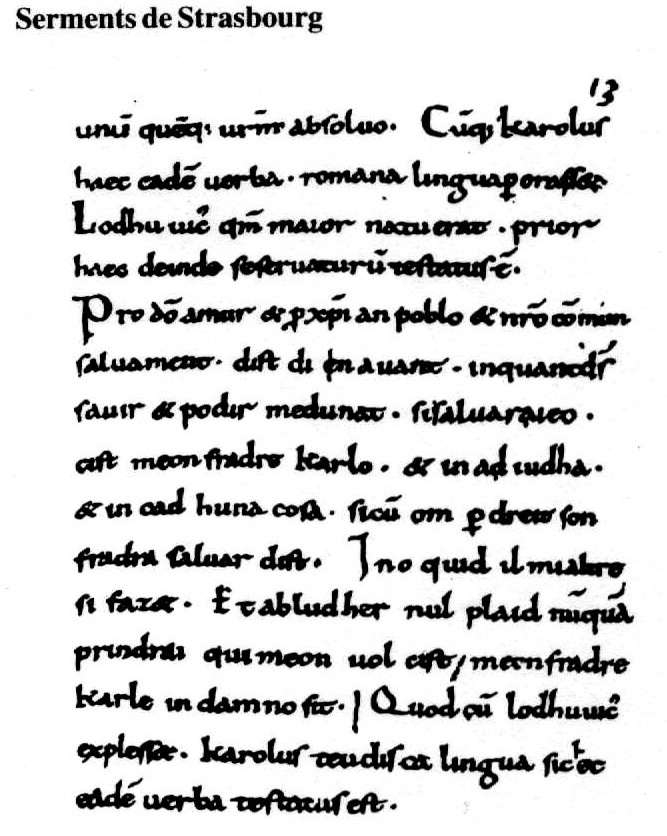 Serments de Strasbourg
13
unū quēq; urm̄ absoluo. Cūq; karolus
haec eadē uerba. romana lingua ꝑorasset
Lodhuuic᷒ qm̄ maior natu erat. prior
haec deinde se seruaturū testatus ē.
Pro dō amur & ꝓ xp̄ian poblo & nrō cōmun
saluament. dist di in auant. inquant dś
sauir & podir medunat. sisaluaraieo.
cist meon fradre karlo. & in adiudha.
& in cad huna cosa. sicū om ꝑ dreit son
fradra saluar dist. Ino quid il mialtre
si fazet. Et abludher nul plaid nūquā
prindrai qui meon uol cist, meonfradre
karle in damno sit. Quod cū lodhuuic᷒
explesset. karolus teudisca lingua sic hec
eadē uerba testatus est.